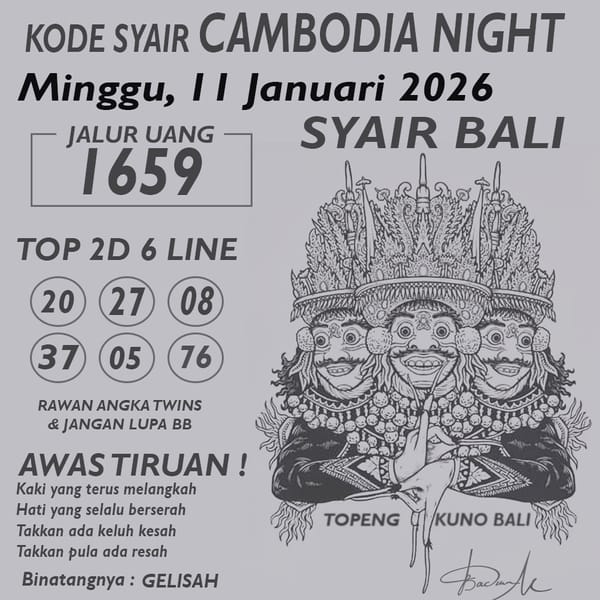 KODE SYAIR CAMBODIA NIGHT
Minggu, 11 Januari 2026
JALUR UANG
1659
SYAIR BALI
TOP 2D 6 LINE
20 27 08
37 05 76
RAWAN ANGKA TWINS
& JANGAN LUPA BB
AWAS TIRUAN !
Kaki yang terus melangkah
Hati yang selalu berserah
Takkan ada keluh kesah
Takkan pula ada resah
Binatangnya : GELISAH
TOPENG KUNO BALI